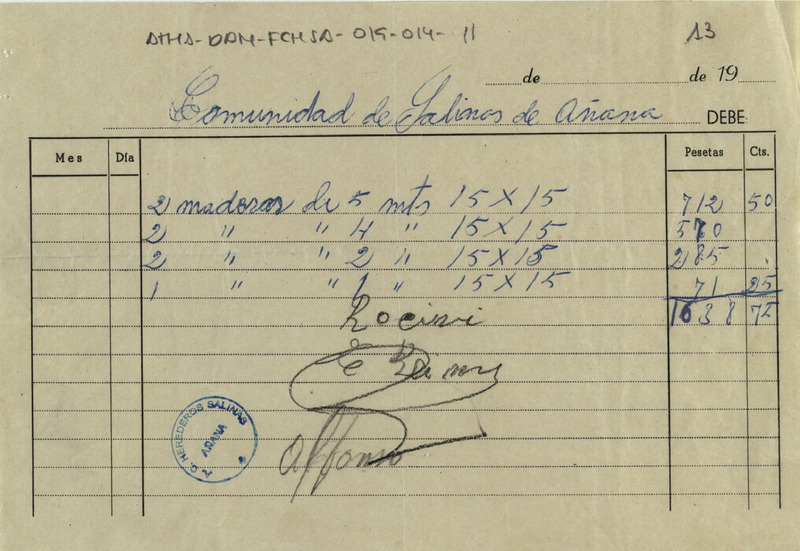 ATHA-DAM-FCHSA-019-014-11 13
de de 19
Comunidad de Salinas de Añana DEBE:
Mes Día Pesetas Cts.
2 maderas de 5 mts 15 X 15 712 50
2 " " 4 " 15 X 15 570
2 " " 2 " 15 X 15 285
1 " " 1 " 15 X 15 71 25
1638 75
Recivi
Alfonso
HEREDEROS SALINAS
AÑANA